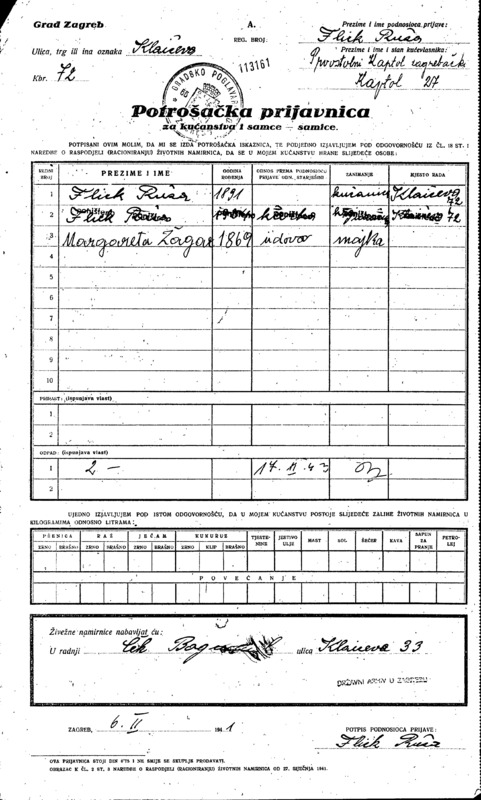 Grad Zagreb
A.
Prezime i ime podnosioca prijave:
Flick Ruža
Ulica, trg ili ina oznaka Klaićeva
REG. BROJ:
113161
Prezime i ime i stan kućevlasnika:
Prvostolni Kaptol zagrebački
Kbr. 72
Kaptol 27
GRADSKO POGLAVAR
Potrošačka prijavnica
za kućanstva i samce — samice.
POTPISANI OVIM MOLIM, DA MI SE IZDA POTROŠAČKA ISKAZNICA, TE PODJEDNO IZJAVLJUJEM POD ODGOVORNOŠĆU IZ ČL. 18 ST. 1
NAREDBE O RASPODJELI (RACIONIRANJU) ŽIVOTNIH NAMIRNICA, DA SE U MOJEM KUĆANSTVU HRANE SLIJEDEĆE OSOBE:
REDNI BROJ
PREZIME I IME
GODINA ROĐENJA
ODNOS PREMA PODNOSIOCU PRIJAVE ODN. STARJEŠINI
ZANIMANJE
MJESTO RADA
1 Flick Ruža 1891 kućanica Klaićeva 72
2 Flick 72
3 Margareta Žagar 1869 udova majka
4
5
6
7
8
9
10
PRIRAST: (ispunjava vlast)
1
2
OTPAD: (ispunjava vlast)
1 2 — 17. II. 43
2
UJEDNO IZJAVLJUJEM POD ISTOM ODGOVORNOŠĆU, DA U MOJEM KUĆANSTVU POSTOJE SLIJEDEĆE ZALIHE ŽIVOTNIH NAMIRNICA U
KILOGRAMIMA ODNOSNO LITRAMA:
PŠENICA RAŽ JEČAM KUKURUZ TJESTENINE JESTIVO ULJE MAST SOL ŠEĆER KAVA SAPUN ZA PRANJE PETROLEJ
ZRNO BRAŠNO ZRNO BRAŠNO ZRNO BRAŠNO ZRNO KLIP BRAŠNO
POVEĆANJE
Živežne namirnice nabavljat ću:
U radnji ulica Klaićeva 33
DRŽAVNI ARHIV U ZAGREBU
ZAGREB, 6. II 194 1
POTPIS PODNOSIOCA PRIJAVE:
Flick Ruža
OVA PRIJAVNICA STOJI DIN 0·75 I NE SMIJE SE SKUPLJE PRODAVATI.
OBRAZAC K ČL. 2 ST. 3 NAREDBE O RASPODJELI (RACIONIRANJU) ŽIVOTNIH NAMIRNICA OD 27. SIJEČNJA 1941.